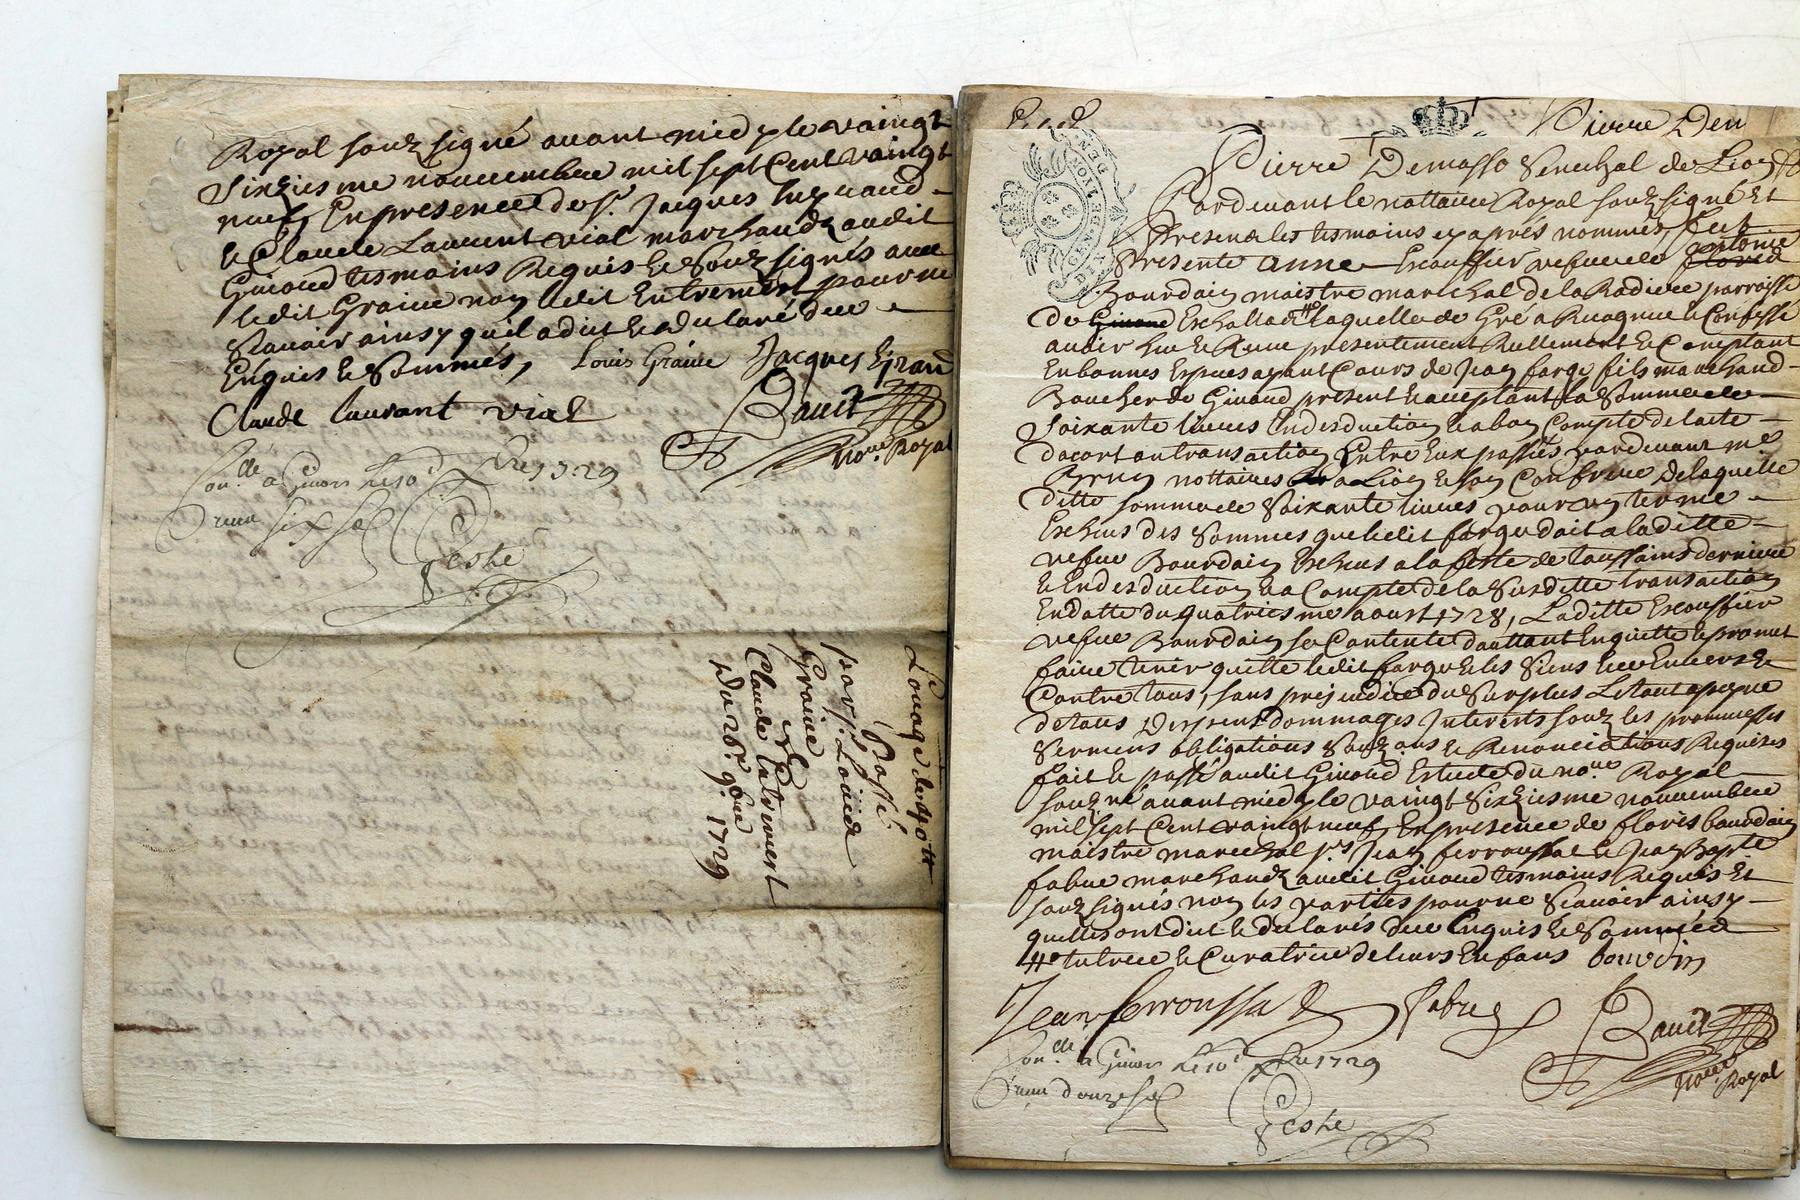 Royal souz signé avant midy le vaingt
sixziesme nouuembre mil sept Cent vaingt
neuf, En presence de sr. Jacques
& Claude Laurent vial marchandz audit
Giuord tesmoins Requis & Souz signés auec
ledit Graine non ledit Entremont pour ne
scauoir ainsy qu'il a dit & declaré deue
Enquis & Sommés,
Louis Graine Jacques
Claude laurant vial
nore. Royal
Conlle a Giuors le 10e Xbre 1729
six
Peshe
Louage de 40tt
Passé
par sr. Loüis
Graine
Claude Entremont
Du 26e 9bre 1729
Pierre Dem
Pierre Demasso Senechal de Lion
GN. DE LYON
Pardeuant le nottaire Royal souz signé Et
Presence les tesmoins cy aprés nommés, feut
Presente anne Escoffier vefue de
Bourdain maistre marechal de la Radiere parroisse
de Eschallad laquelle de Gré a Recognue & Confessé
auoir hue & Receue presentement Reellement & Comptant
En bonnes Especes ayant Cours de Jean farge fils marchand
Boucher de Giuord present & acceptant la Somme de
soixante liures En desduction & a bon Compte de lacte
dacort ou transaction Entre Eux passés pardeuant me.
nottaires a Lion & son Confrere De laquelle
ditte somme de Soixante liures pour un terme
Escheus des Sommes que ledit farge doit a laditte
vefue Bourdain Escheus a la feste de toussaints derniere
& En desduction & a Compte de la Susditte transaction
En datte du quatriesme aoust 1728, Laditte Escouffier
vefue Bourdain se Contente d'auttant En quitte & promet
faire tenir quitte ledit farge & les Siens Enuers &
Contre tous, sans prejudice du Surplus
de tous Despens dommages Interets souz les prommesses
Sermens obligations & Renonciations Requises
fait & passé audit Giuord Estude du nore. Royal
souz né auant midy le vaingt Sixziesme nouuembre
mil sept Cent vaingt neuf, En presence de floris bourdain
maistre marechal sr. Jean ferroussat & Jean Bapte
fabue marchandz audit Giuord tesmoins Requis Et
souz signés non les parties pour ne Scauoir ainsy
quelles ont dit & declarés deue Enquis & Sommée
tutrice & Curatrice de leurs Enfans bourdin
Jean ferroussat
nore. Royal
Conlle a Giuors le 10e Xbre 1729
douze
Peshe